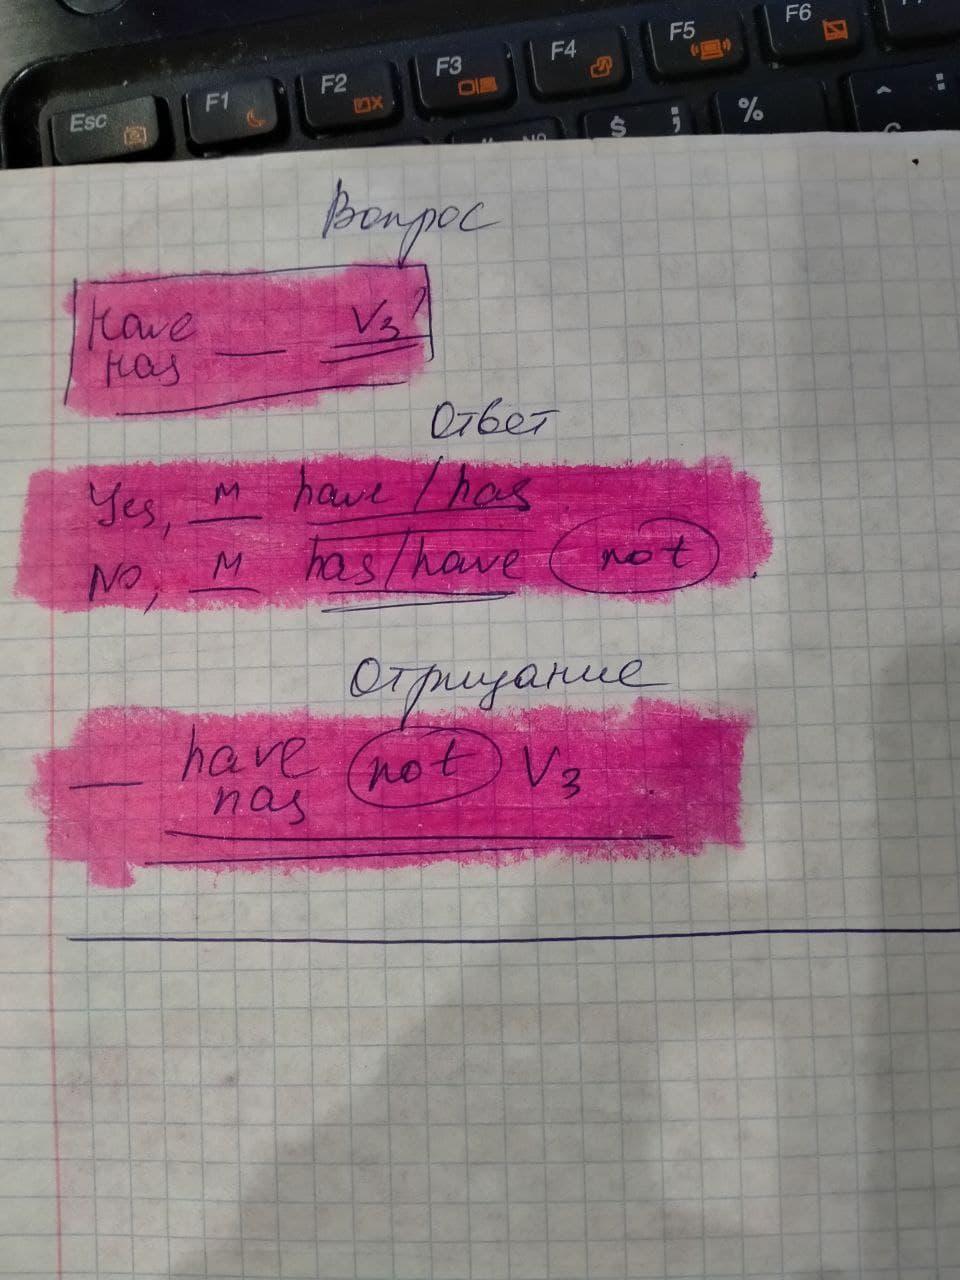 Esc F1 F2 F3 F4 F5 F6
$ ; % ^ :
Вопрос
Have
Has ___ V3?
Ответ
Yes, м have / has
No, м has/have not
Отрицание
___ have not V3
has